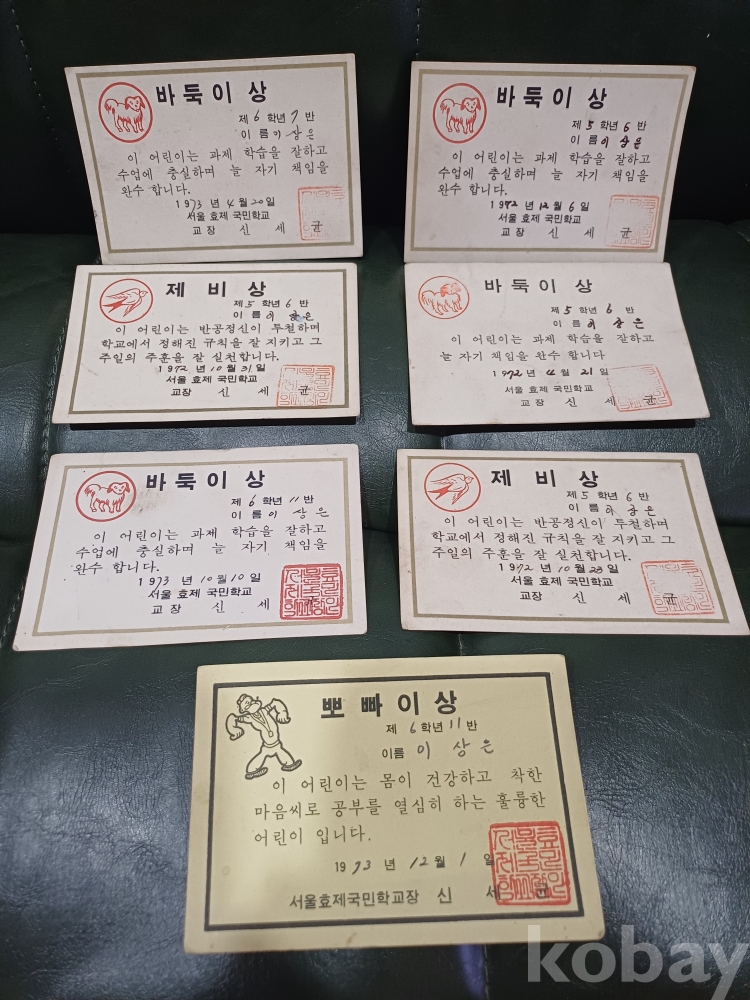 바둑이상
제 6 학년 7 반
이 름 이 상 은
이 어린이는 과제 학습을 잘하고
수업에 충실하며 늘 자기 책임을
완수 합니다.
1973 년 4 월 20 일
서울 효제 국민학교
교장 신 세 균
바둑이상
제 5 학년 6 반
이 름 이 상 은
이 어린이는 과제 학습을 잘하고
수업에 충실하며 늘 자기 책임을
완수 합니다.
1972 년 12 월 6 일
서울 효제 국민학교
교장 신 세 균
제 비 상
제 5 학년 6 반
이 름 이 상 은
이 어린이는 반공정신이 투철하며
학교에서 정해진 규칙을 잘 지키고 그
주일의 주훈을 잘 실천합니다.
1972 년 10 월 31 일
서울 효제 국민학교
교장 신 세 균
바둑이상
제 5 학년 6 반
이 름 이 상 은
이 어린이는 과제 학습을 잘하고
늘 자기 책임을 완수 합니다
1972 년 4 월 21 일
서울 효제 국민학교
교 장 신 세 균
바둑이상
제 6 학년 11 반
이 름 이 상 은
이 어린이는 과제 학습을 잘하고
수업에 충실하며 늘 자기 책임을
완수 합니다.
1973 년 10 월 10 일
서울 효제 국민학교
교 장 신 세 균
제 비 상
제 5 학년 6 반
이 름 이 상 은
이 어린이는 반공정신이 투철하며
학교에서 정해진 규칙을 잘 지키고 그
주일의 주훈을 잘 실천합니다.
1972 년 10 월 23 일
서울 효제 국민학교
교장 신 세 균
뽀빠이상
제 6 학년 11 반
이름 이 상 은
이 어린이는 몸이 건강하고 착한
마음씨로 공부를 열심히 하는 훌륭한
어린이 입니다.
1973 년 12 월 1 일
서울효제국민학교장 신 세 균
kobay